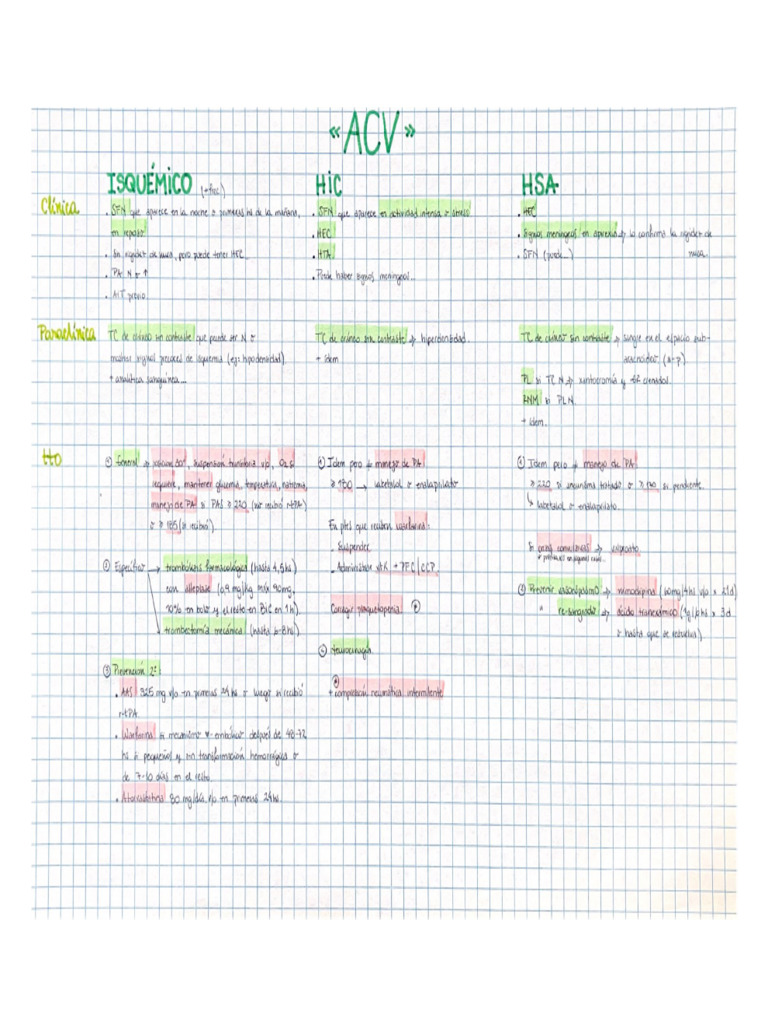 «ACV»
ISQUÉMICO (+frec)
HiC
HSA
Clínica
• SFN que aparece en la noche o primeras hs de la mañana,
en reposo
• Sin rigidez de nuca, pero puede tener HEC.
• PA N o ↑
• AIT previo
• SFN que aparece en actividad intensa o stress
• HEC
• HTA
• Puede haber signos meníngeos...
• HEC
• Signos meníngeos en aprexia → lo confirma la rigidez de
nuca.
• SFN (puede...)
Paraclínica
TC de cráneo sin contraste que puede ser N o
mostrar signos precoces de isquemia (ej: hipodensidad)
+ analítica sanguínea...
TC de cráneo sin contraste → hiperdensidad.
+ idem
TC de cráneo sin contraste → sangre en el espacio sub-
aracnoideo (a-p)
PL si TC N → xantocromía y GR crenados.
RNM si PL N.
+ idem.
tto
① General → reposo 30°, suspensión transitoria v/o, O2 si
requiere, mantener glucemia, temperatura, natremia,
manejo de PA si PAS ≥ 220 (no recibió rtPA)
o ≥ 185 (si recibió)
② Específico → trombólisis farmacológica (hasta 4,5hs)
con alteplase (0,9 mg/kg máx 90mg,
10% en bolo y el resto en BIC en 1h).
trombectomía mecánica (hasta 6-8hs)
③ Prevención 2°:
• AAS 325 mg v/o en primeras 24hs o luego si recibió
r-tPA.
• Warfarina si mecanismo embólico después de 48-72
hs si pequeños y sin transformación hemorrágica o
de 7-10 días en el resto.
• Atorvastatina 80 mg/día v/o en primeras 24hs.
① Idem pero → manejo de PA:
≥ 180 → labetalol o enalaprilato
En ptes que reciben warfarina:
- Suspender
- Administrar vit K + PFC / CCP.
Corregir plaquetopenia
② Neurocirugía
+ compresión neumática intermitente
① Idem pero → manejo de PA:
≥ 220 si aneurisma tratado o ≥ 160 si pendiente.
↳ labetalol o enalaprilato.
Si crisis convulsivas → valproato
② Prevenir vasoespasmo → nimodipina (60mg/4hs v/o x 21d)
" re-sangrado → ácido tranexámico (1g/6hs x 3d
o hasta que se resuelva)